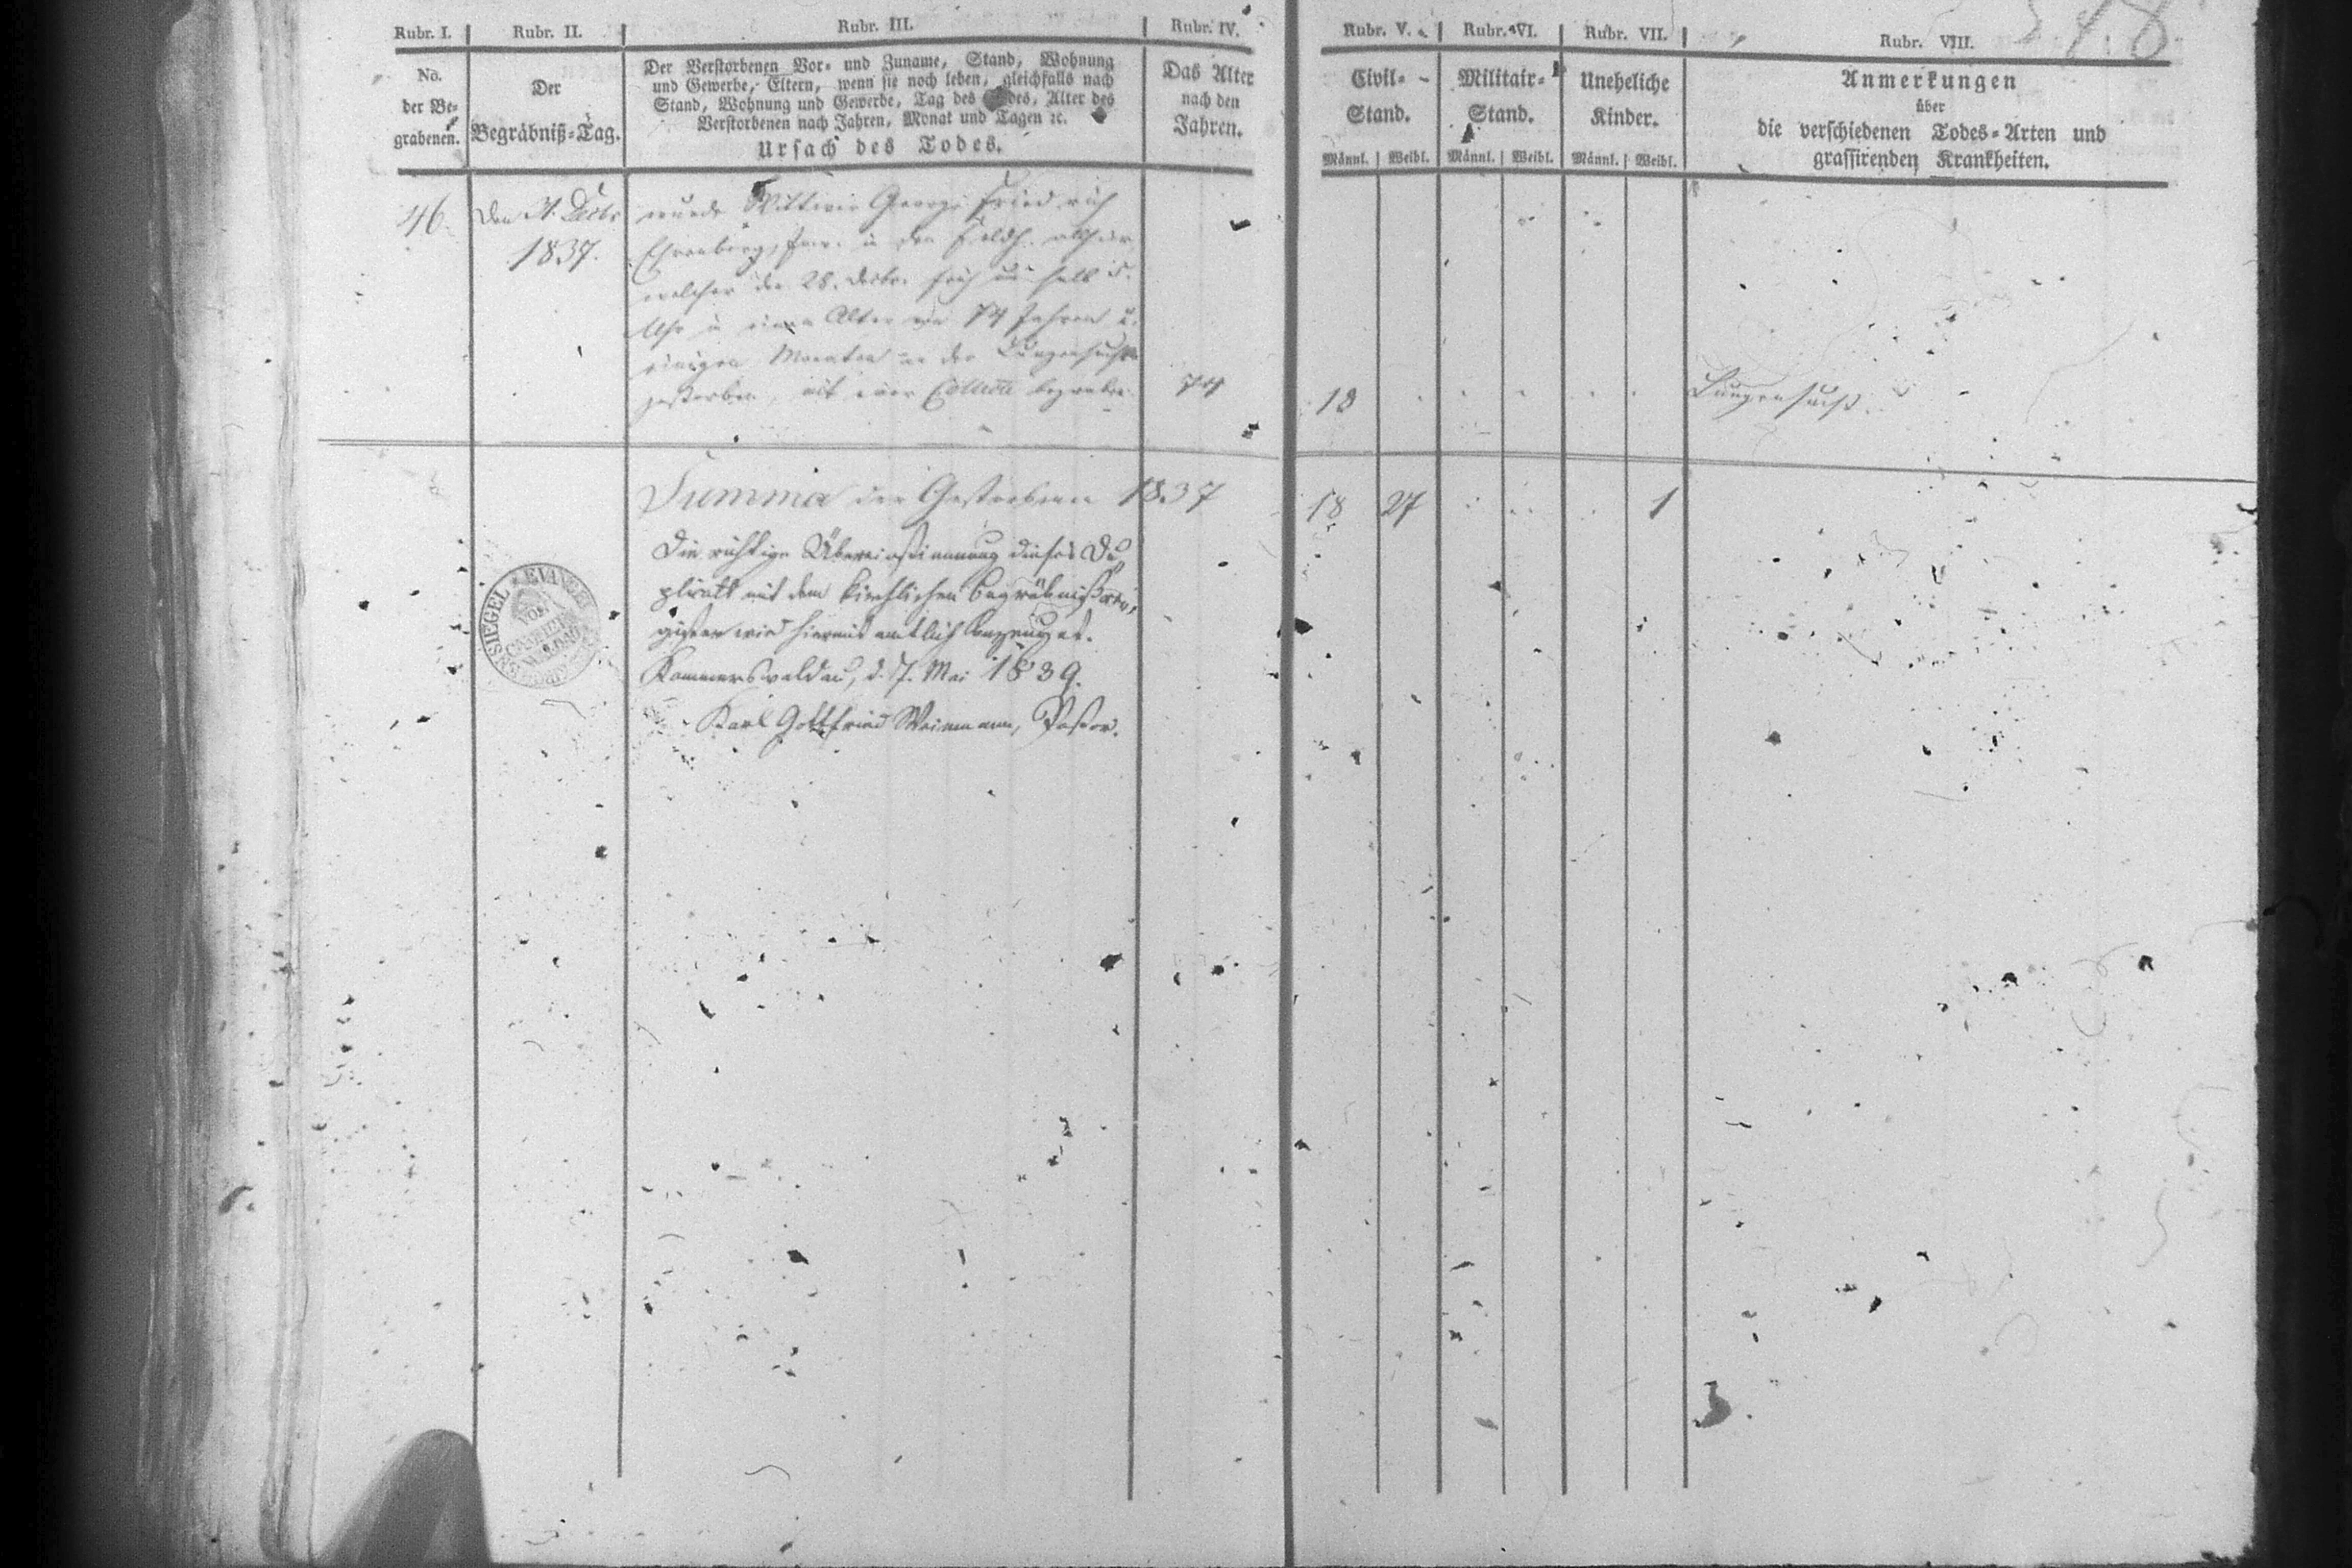 Rubr. I.
Rubr. II.
Rubr. III.
Rubr. IV.
Rubr. V.
Rubr. VI.
Rubr. VII.
Rubr. VIII.
No.
der Be-
grabenen.
Der
Begräbniß-Tag.
Der Verstorbenen Vor- und Zuname, Stand, Wohnung
und Gewerbe, Eltern, wenn sie noch leben, gleichfalls nach
Stand, Wohnung und Gewerbe, Tag des Todes, Alter des
Verstorbenen nach Jahren, Monat und Tagen ꝛc.
Ursach des Todes.
Das Alter
nach den
Jahren.
Civil-
Stand.
Männl. Weibl.
Militair-
Stand.
Männl. Weibl.
Uneheliche
Kinder.
Männl. Weibl.
Anmerkungen
über
die verschiedenen Todes-Arten und
grassirenden Krankheiten.
46.
Den 31. Decbr
1837.
wurde Wittwer George Friedrich
Ehrenberg, in den
welcher den 28. Decbr. früh um halb 5.
Uhr in einem Alter von 74 Jahren u.
einigen Monaten an der Lungensucht
gestorben, mit einer Collecte begraben.
74
18
Lungensucht.
Summa der Gestorbenen 1837
18 27 1
Die richtige Übereinstimmung dieses Du-
plicats mit dem kirchlichen Begräbnißre-
gister wird hiermit amtlich bezeuget.
Kammerswaldau, d. 7. Mai 1839.
Karl Gottfried Weinmann, Pastor.